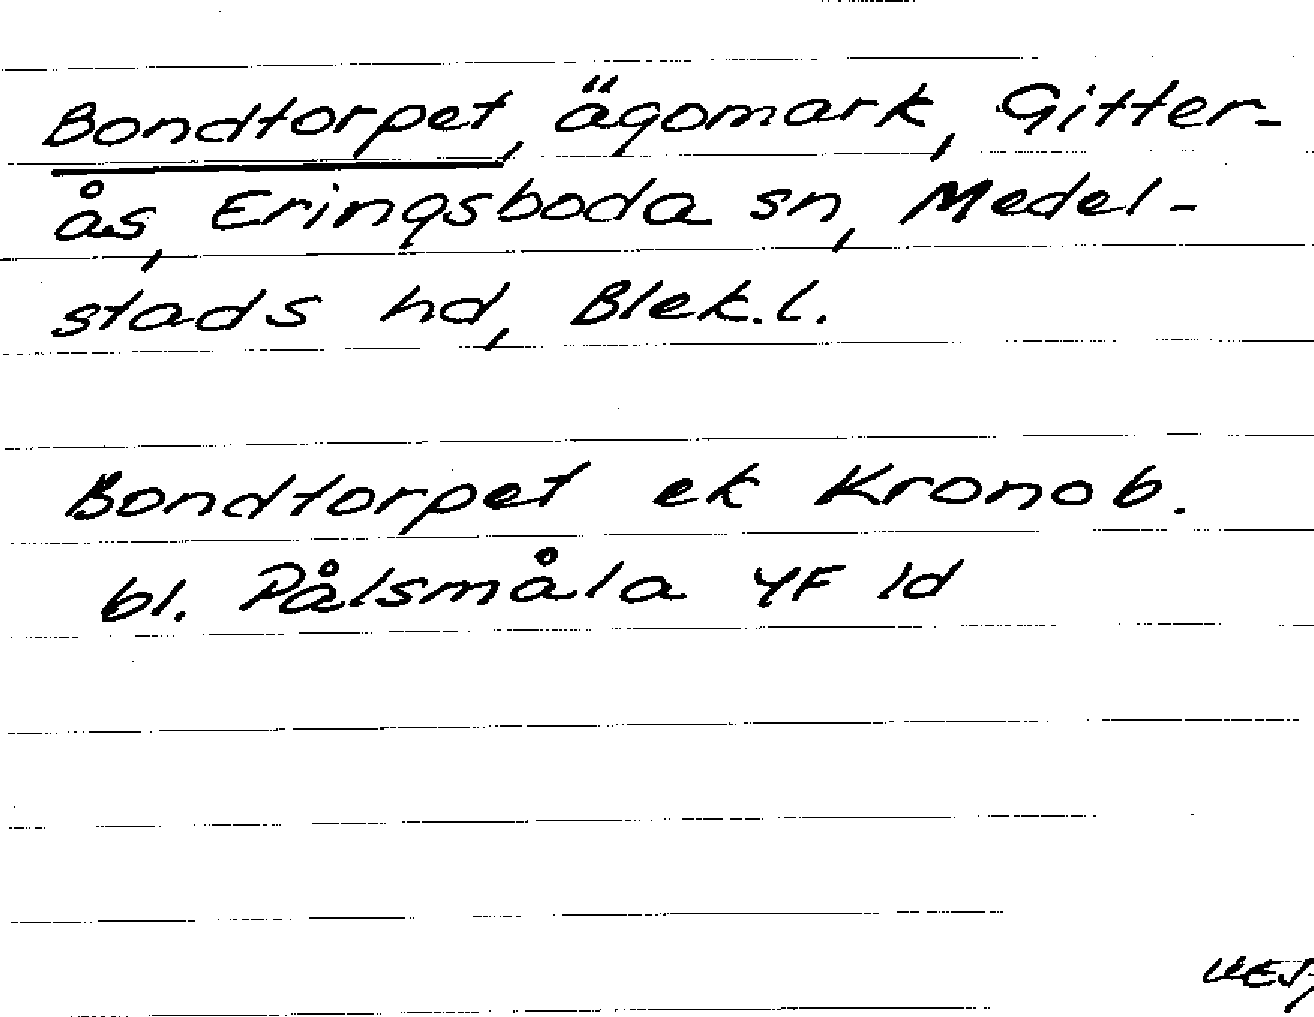 Bondtorpet, ägomark, Gitter-
ås, Eringsboda sn, Medel-
stads hd, Blek.l.
Bondtorpet ek Kronob.
bl. Pålsmåla 4F 1d